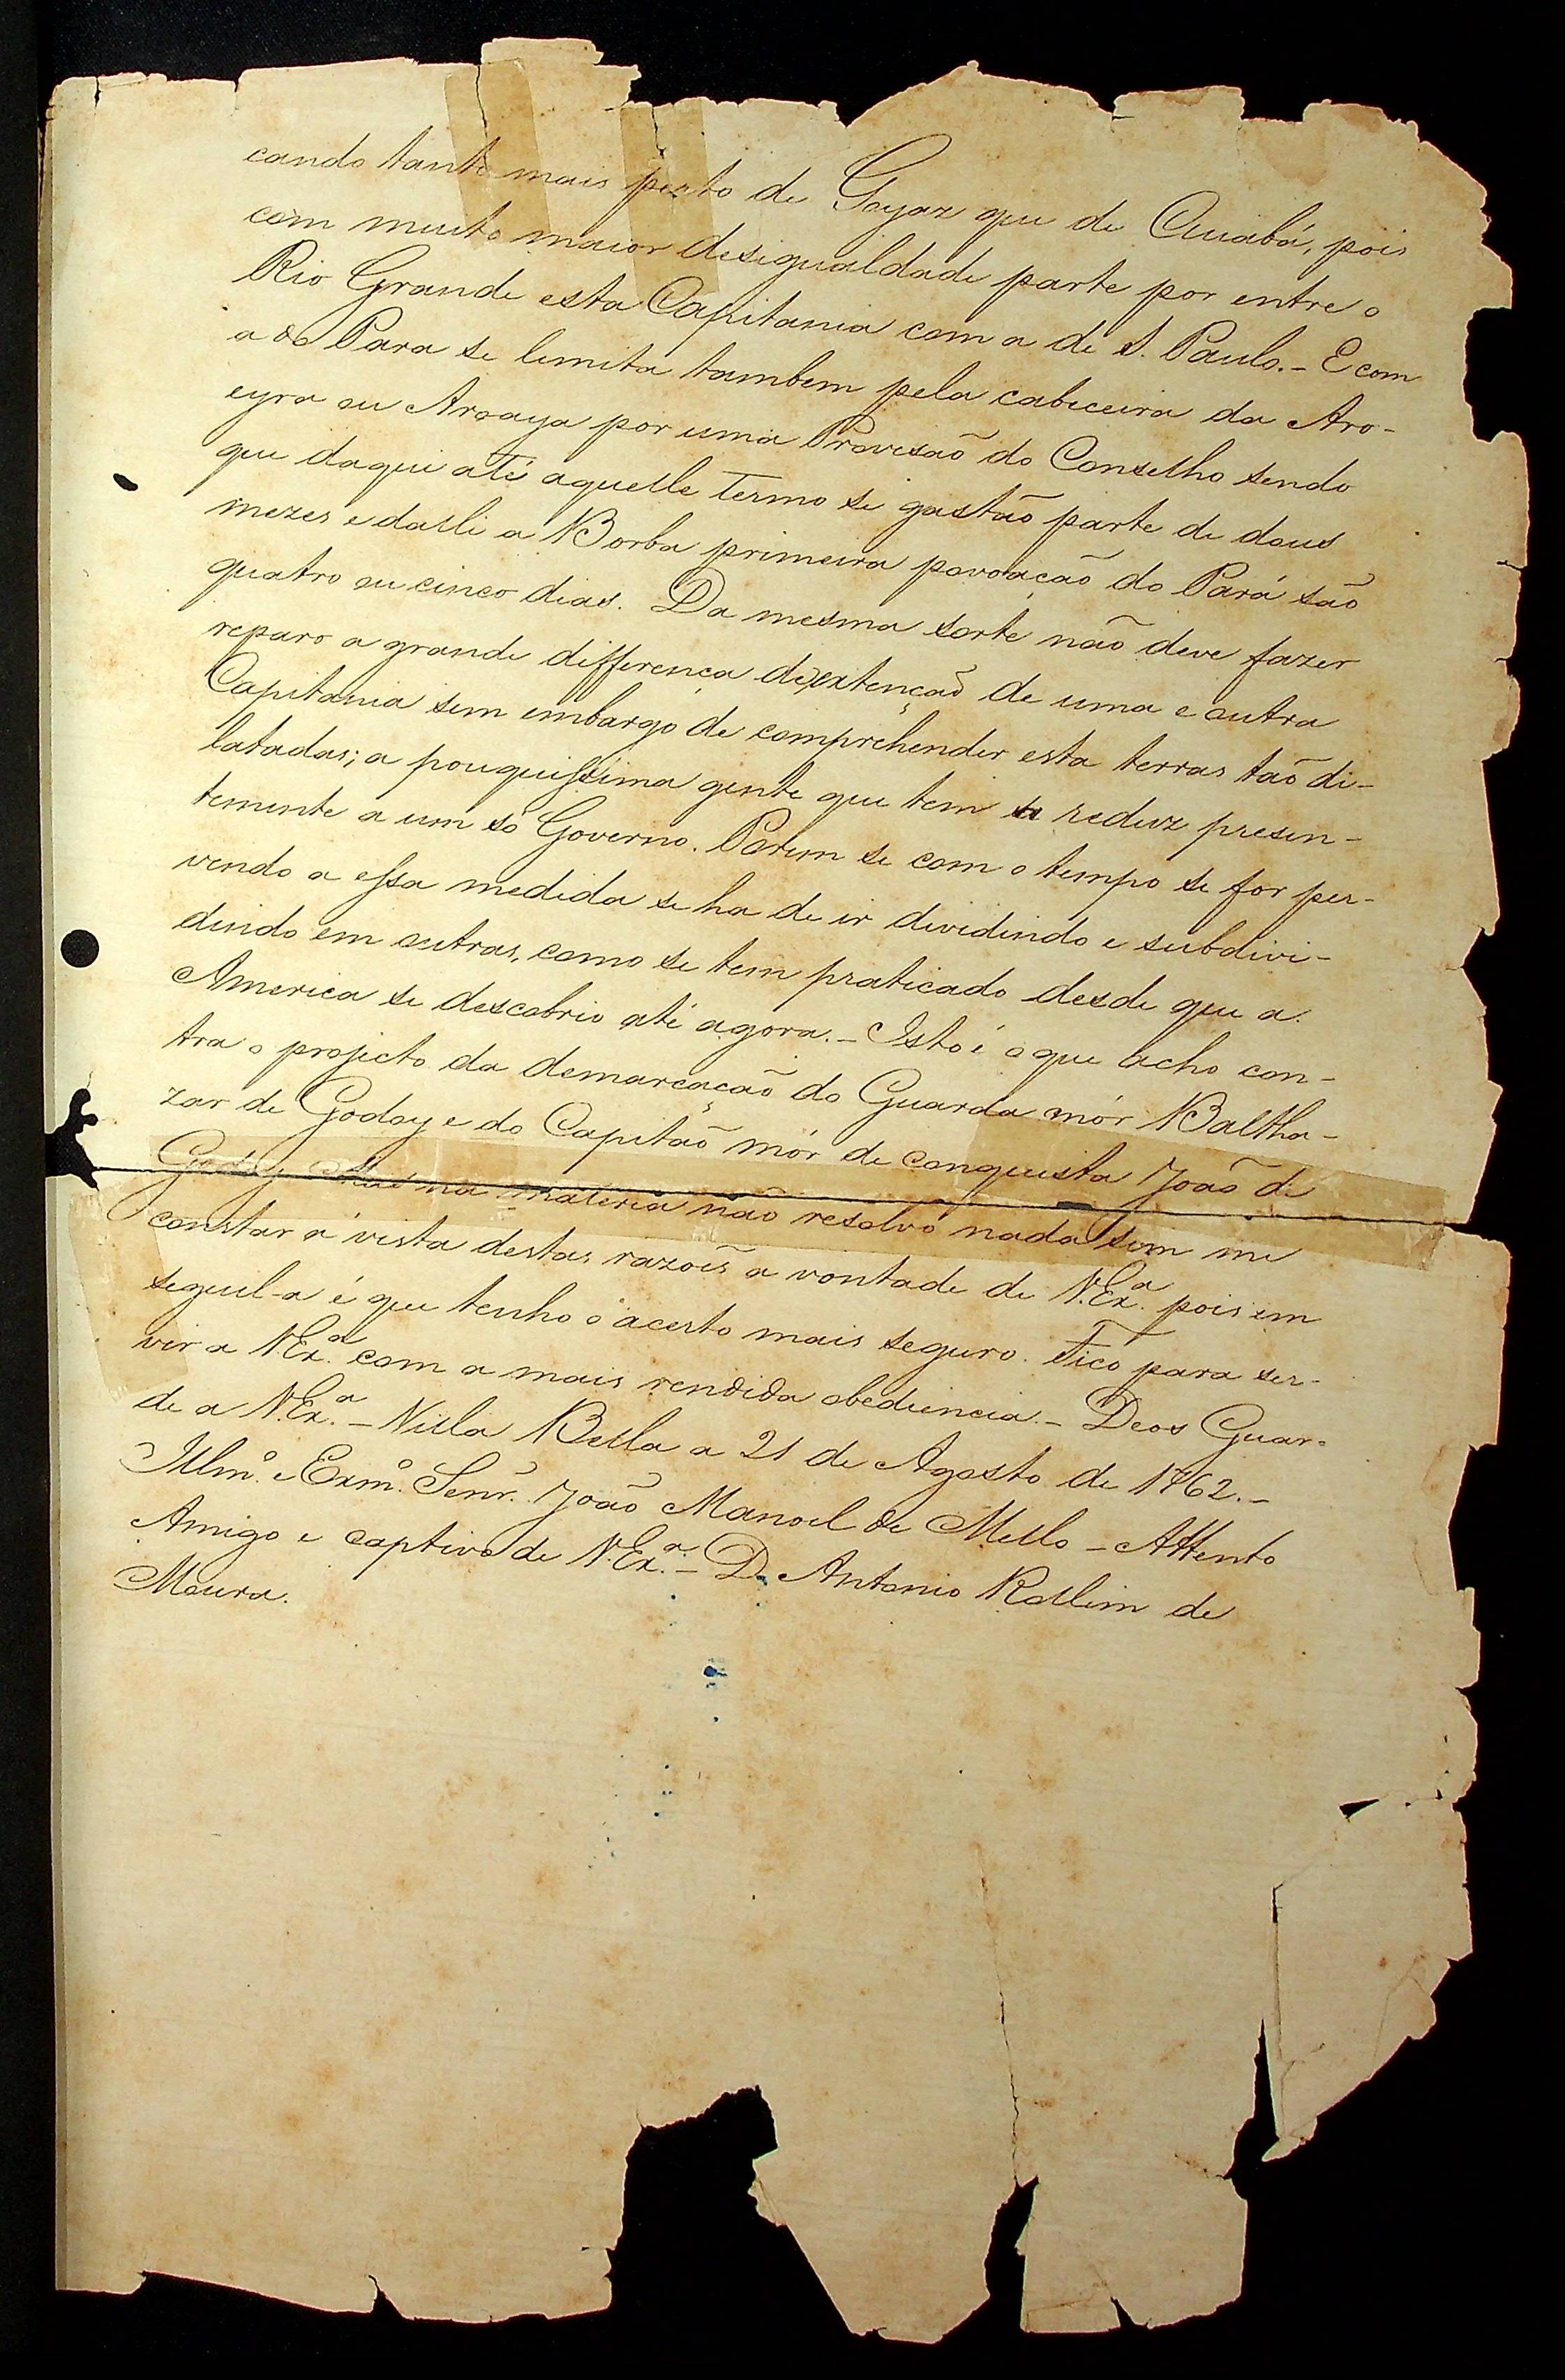 cando tanto mais perto de Goyaz que de Cuiabá, pois
com muito maior desigualdade parte por entre o
Rio Grande esta Capitania com a de S. Paulo. _ E com
a do Para se limita tambem pela cabeceira da Aro-
eyra ou Aroaya por uma Provisaõ do Conselho sendo
que daqui até aquelle termo se gastão parte de dous
mezes e dalli a Borba primeira povoação do Pará são
quatro ou cinco dias. Da mesma sorte não deve fazer
reparo a grande differença de extençaõ de uma e outra
Capitania sem embargo de comprehender esta terras taõ di-
latadas; a pouquissima gente que tem se reduz presen-
temente a um só Governo. Porem se com o tempo se for per-
vendo a essa medida se ha de ir dividindo e subdivi-
dindo em outras, como se tem praticado desde que a
America se descobrio até agora. _ Isto é o que acho con-
tra o projecto da demarcaçaõ do Guarda mór Baltha-
zar de Godoy e do Capitaõ mór de conquista João de
Godoy na materia não resolvo nada sem me
constar á vista destas razoẽs a vontade de V. Ex.ª pois em
seguil-a é que tenho o acerto mais seguro. Fico para ser-
vir a V. Ex.ª com a mais rendida obediencia. _ Deos Guar-
de a V. Ex.ª _ Villa Bella a 21 de Agosto de 1762. _
Illmº. e Exmº. Senr. João Manoel de Mello _ Attento
Amigo e captivo de V. Ex.ª _ D. Antonio Rollim de
Moura.